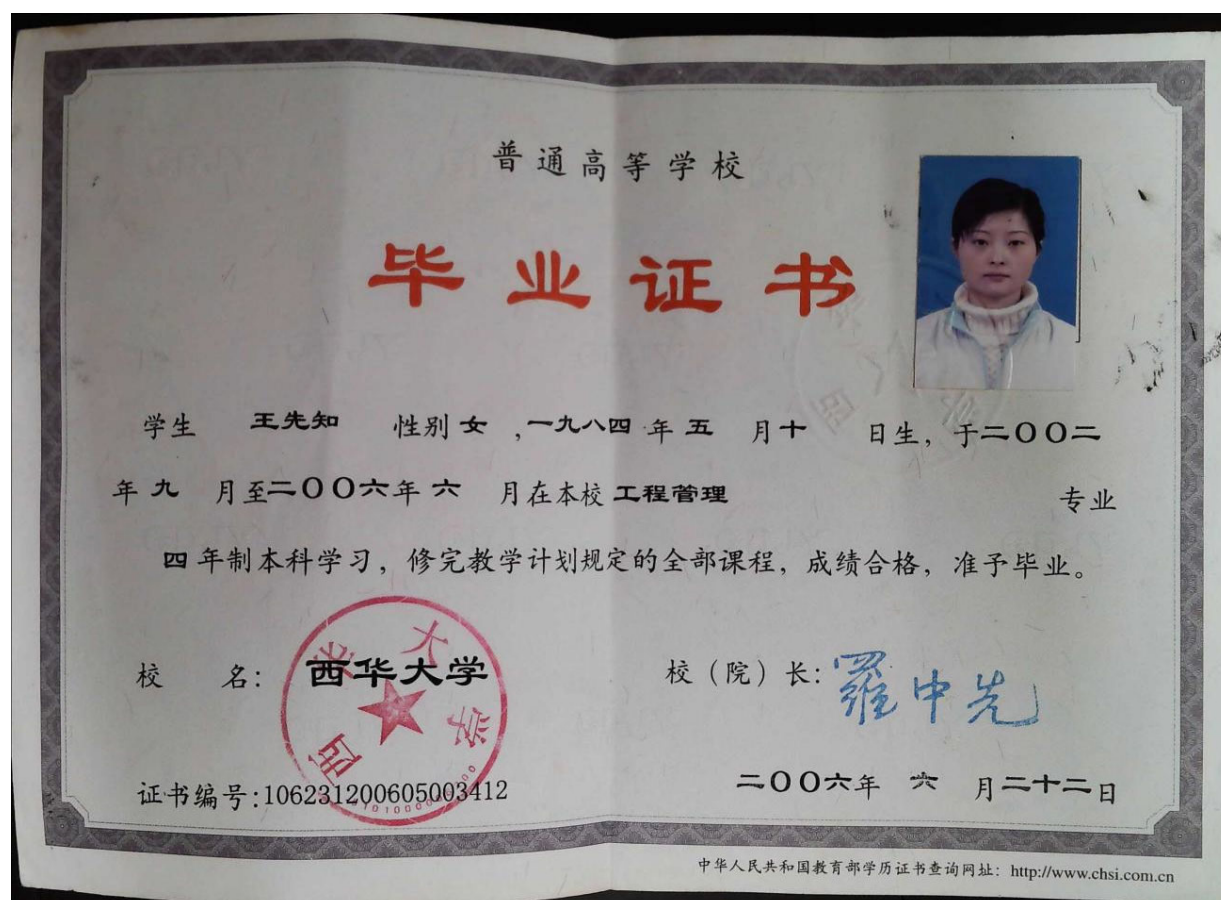 普通高等学校
毕业证书
学生 王先知 性别 女 ,一九八四 年 五 月 十 日生, 于二〇〇二
年 九 月至二〇〇六年 六 月在本校 工程管理 专业
四 年制本科学习, 修完教学计划规定的全部课程, 成绩合格, 准予毕业。
校 名: 西华大学
西华大学
校（院）长: 羅中先
证书编号:106231200605003412
二〇〇六年 六 月二十二日
中华人民共和国教育部学历证书查询网址: http://www.chsi.com.cn